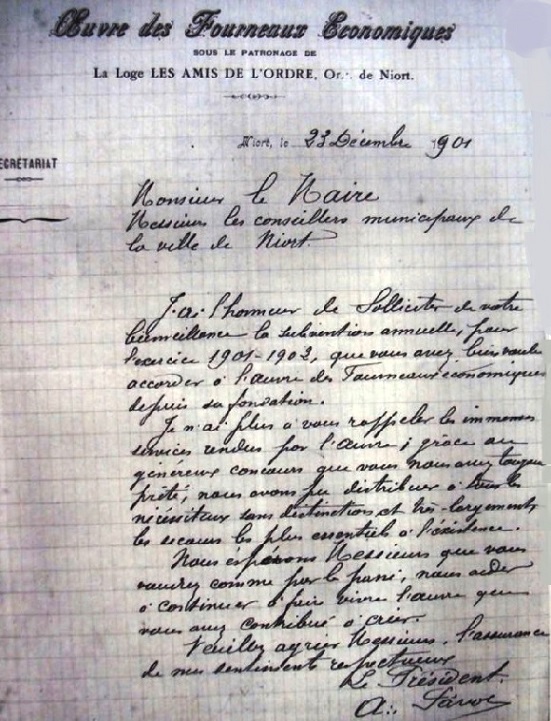 Œuvre des Fourneaux Economiques
SOUS LE PATRONAGE DE
La Loge LES AMIS DE L'ORDRE, Or∴ de Niort.
Niort, le 23 Décembre 1901
ECRÉTARIAT
Monsieur le Maire
Messieurs les conseillers municipaux de
la ville de Niort.
J'ai l'honneur de Solliciter de votre
bienveillance la subvention annuelle, pour
l'exercice 1901-1902, que vous avez bien voulu
accorder à l'œuvre des Fourneaux économiques
depuis sa fondation.
Je n'ai plus à vous rappeler les immenses
services rendus par l'œuvre ; grâce au
généreux concours que vous nous avez toujours
prêté, nous avons pu distribuer à tous les
nécessiteux sans distinction et très-largement
les secours les plus essentiels à l'existence.
Nous espérons Messieurs que vous
voudrez comme par le passé, nous aider
à continuer à faire vivre l'œuvre que
vous avez contribué à créer.
Veuillez agréer Messieurs, l'assurance
de mes sentiments respectueux
Le Président.
A.